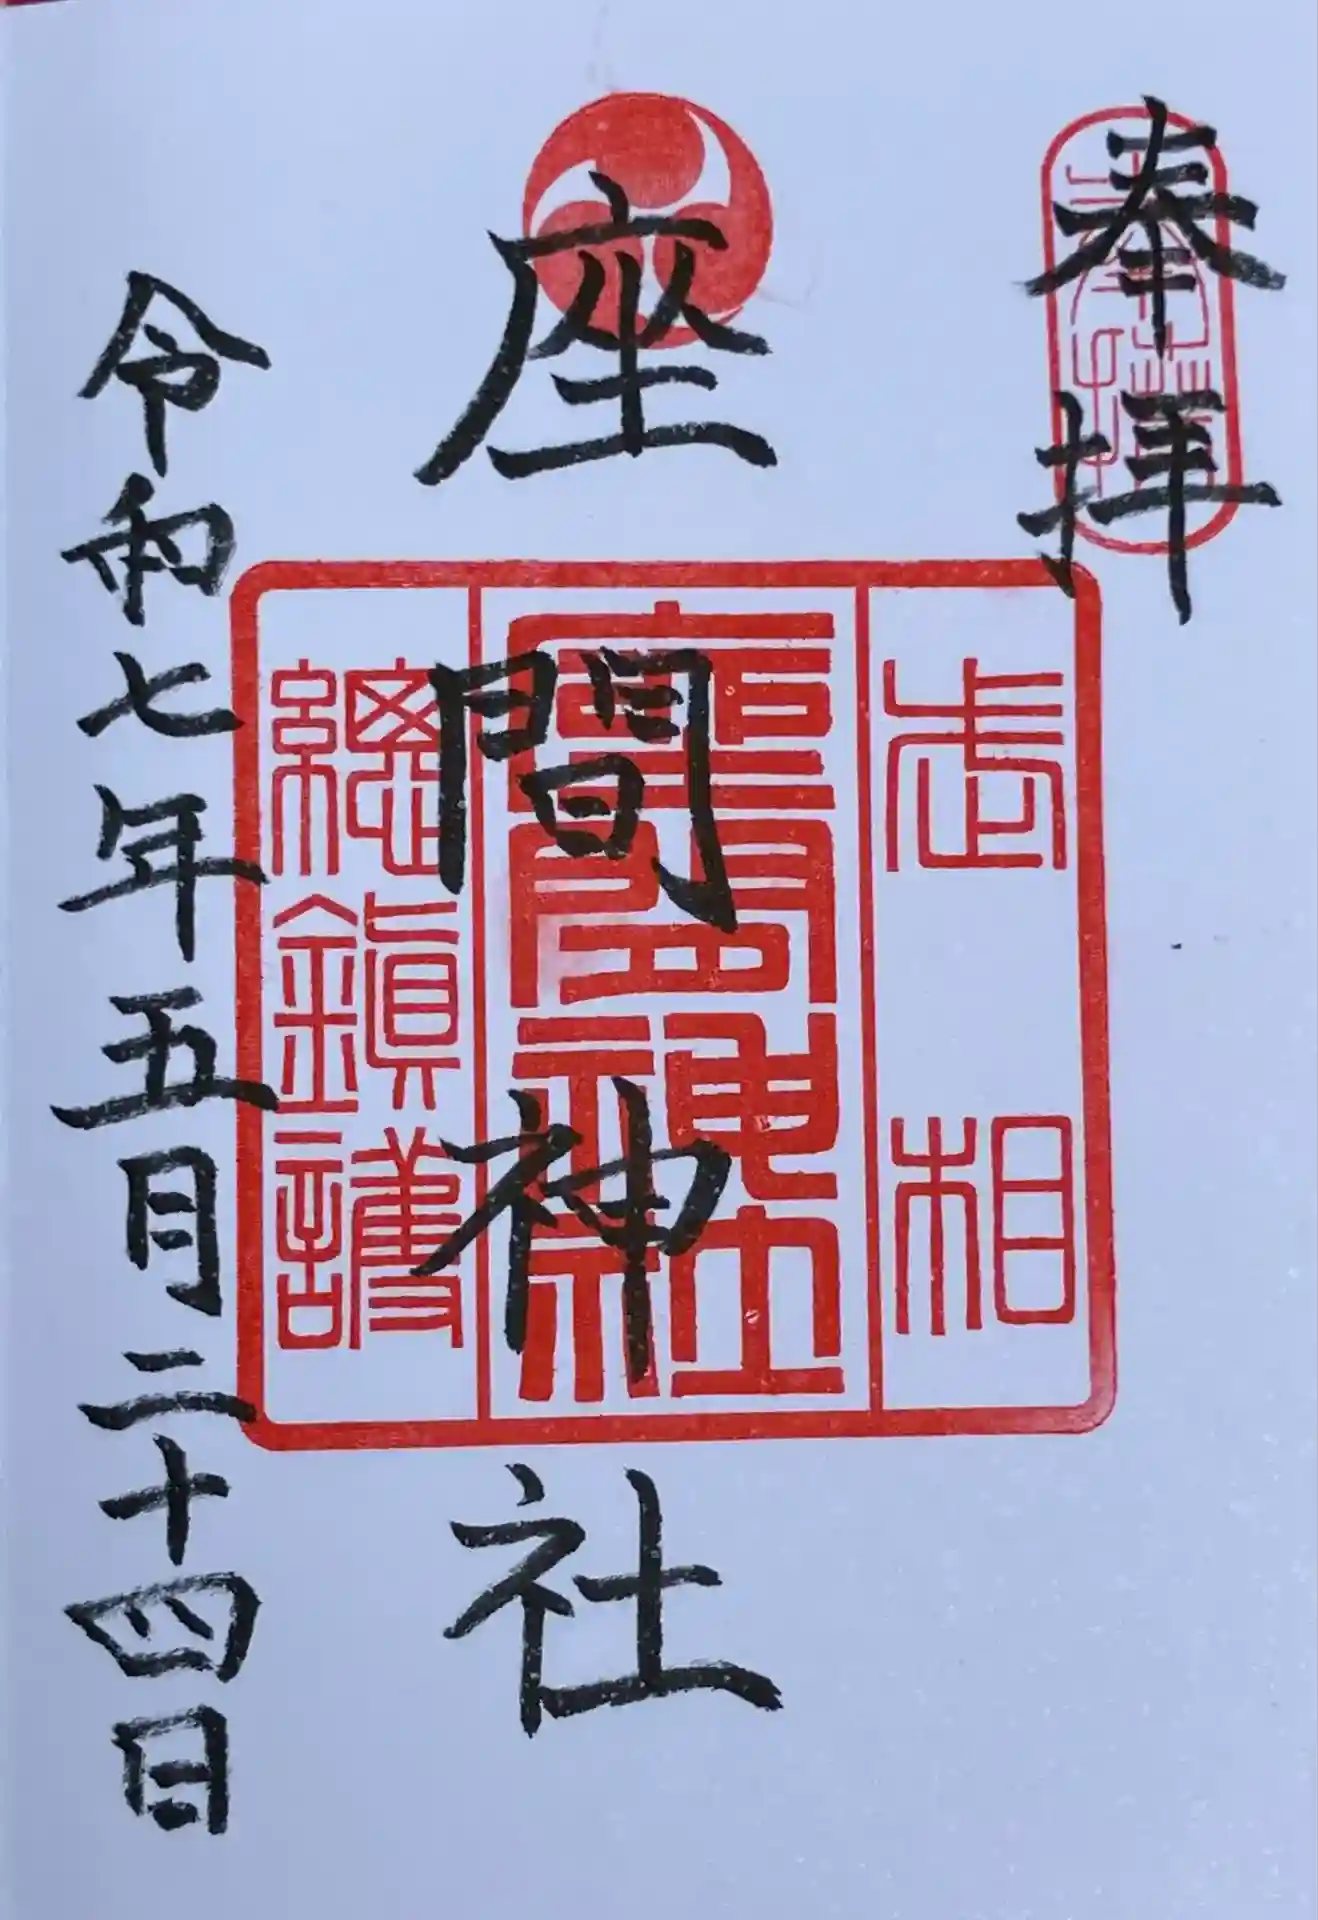 奉拝
相武
座間神社
總鎮護
座間神社
令和七年五月二十四日